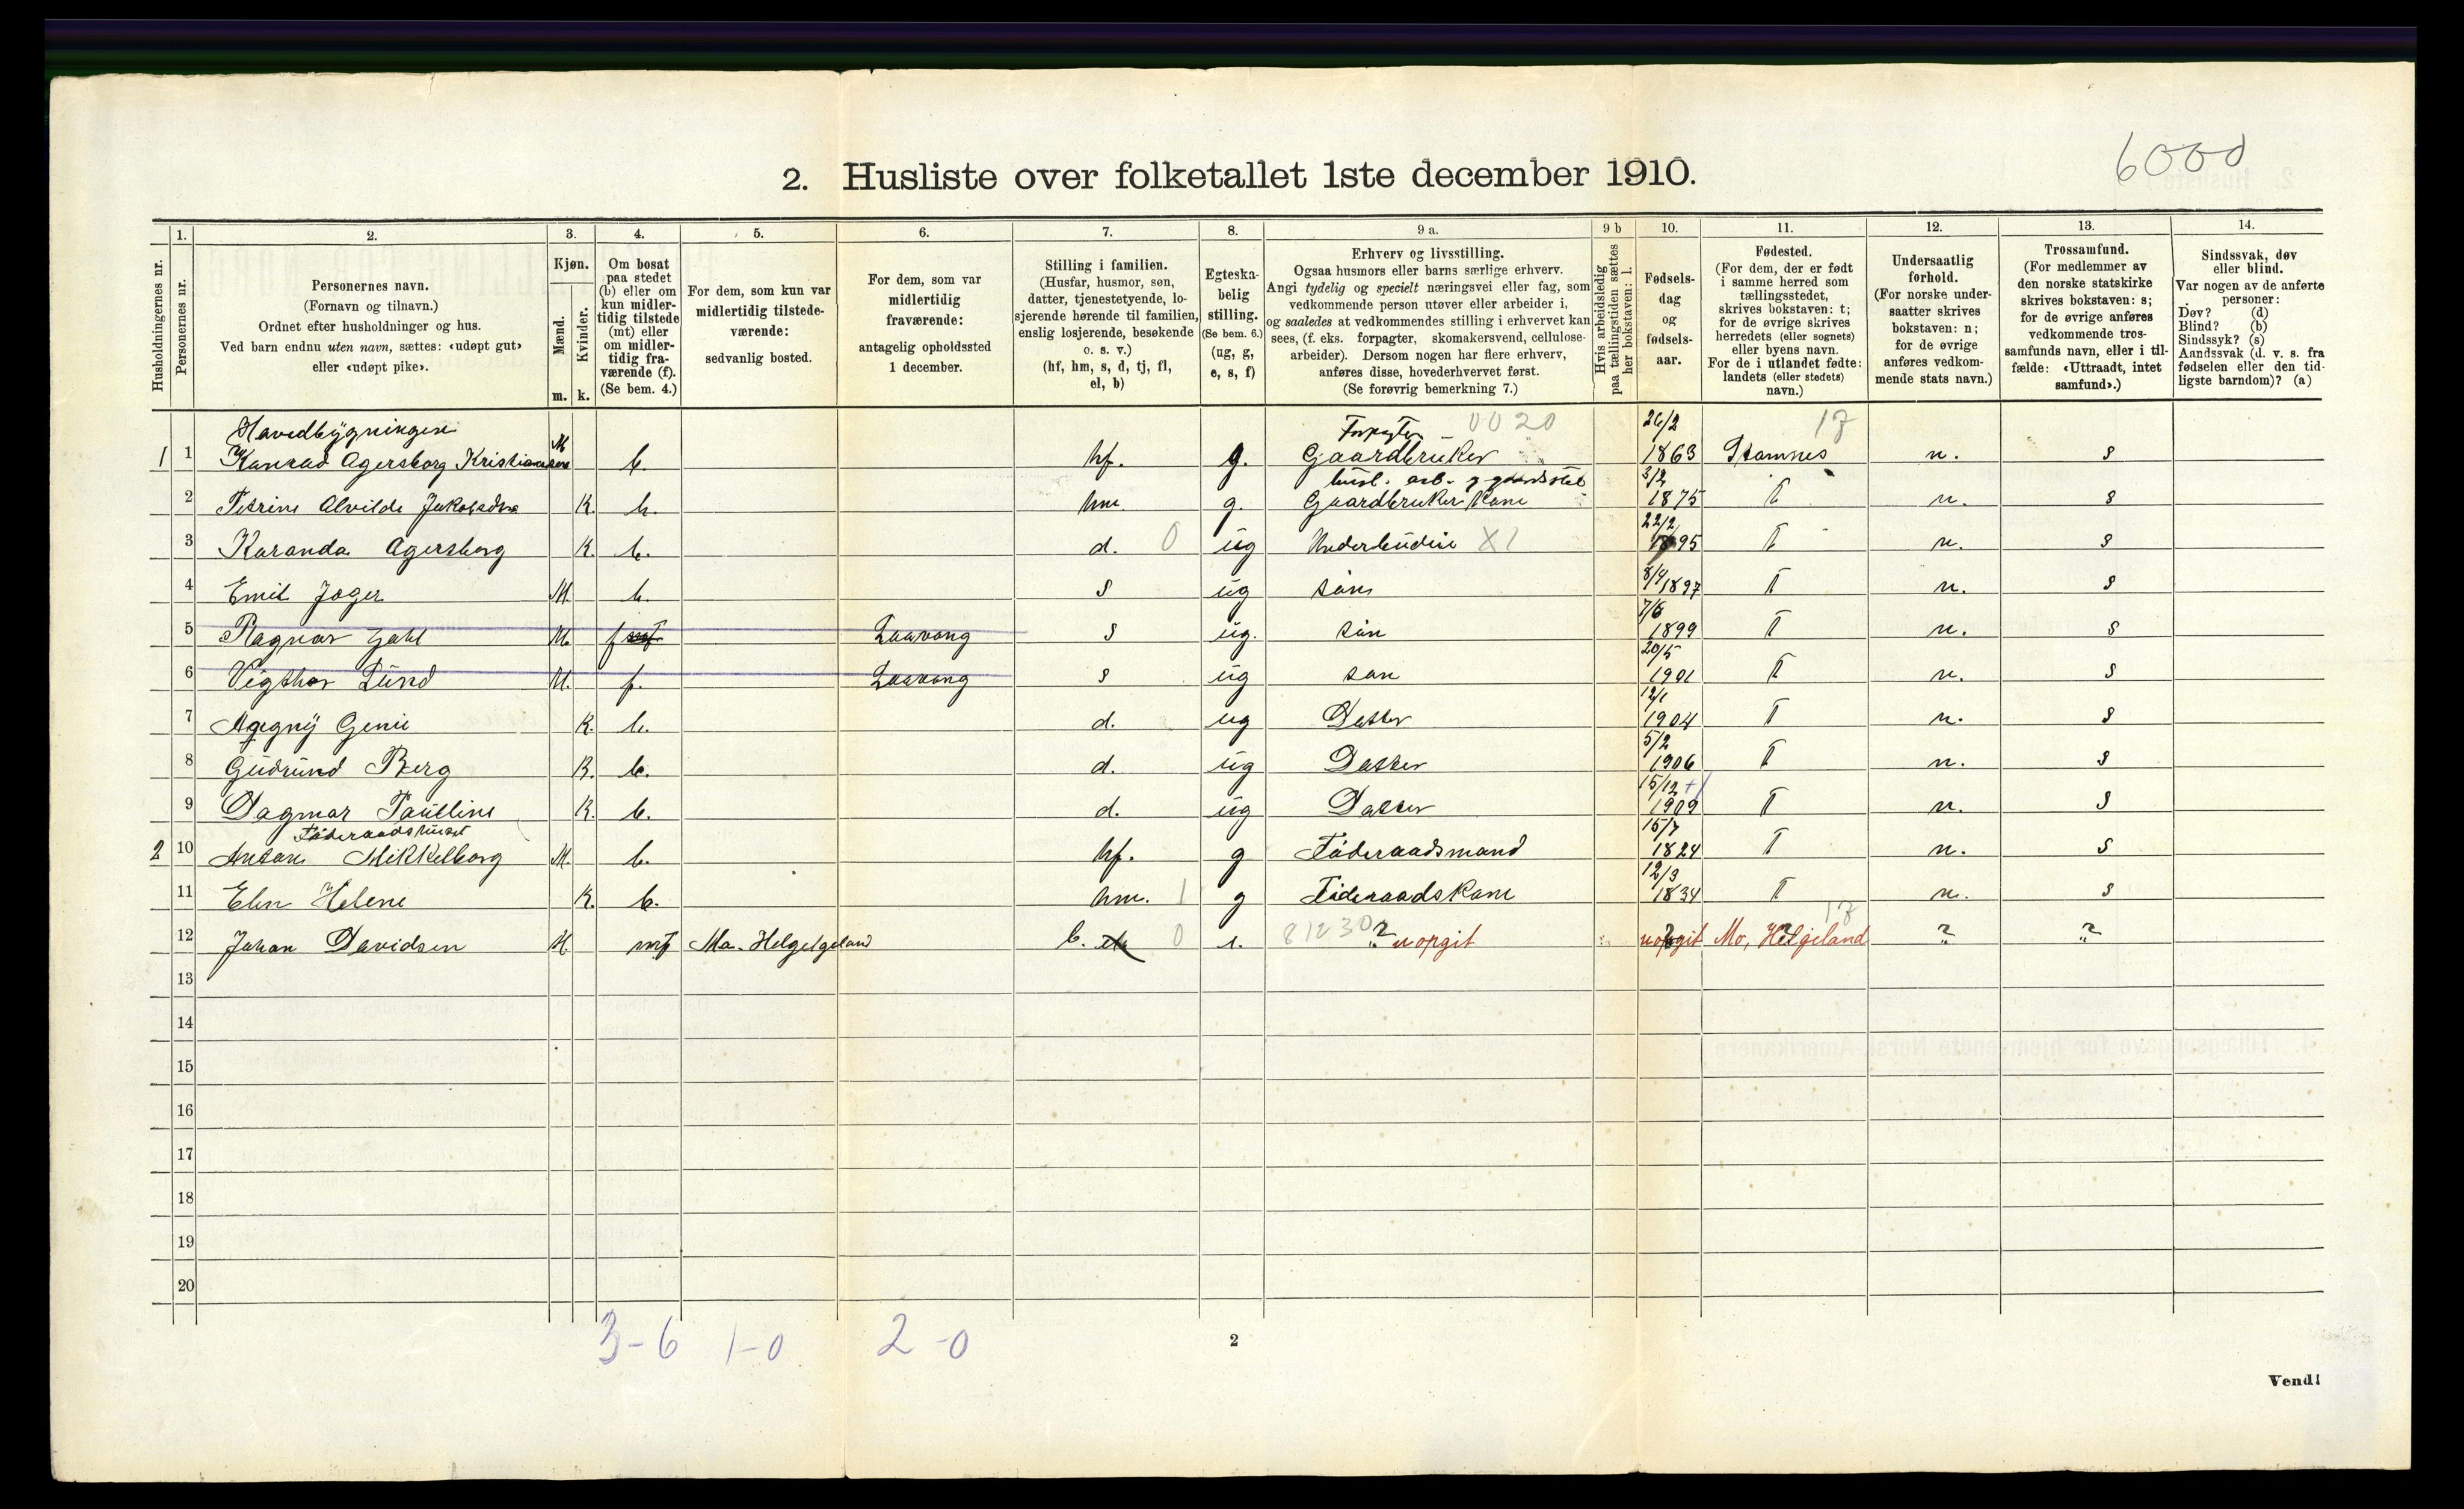 6000
2. Husliste over folketallet 1ste december 1910.
Husholdningernes nr.
1. Personernes nr.
2. Personernes navn.
(Fornavn og tilnavn.)
Ordnet efter husholdninger og hus.
Ved barn endnu uten navn, sættes: «udøpt gut»
eller «udøpt pike».
3. Kjøn.
Mænd. Kvinder.
m. k.
4. Om bosat
paa stedet
(b) eller om
kun midler-
tidig tilstede
(mt) eller
om midler-
tidig fra-
værende (f).
(Se bem. 4.)
5. For dem, som kun var
midlertidig tilstede-
værende:
sedvanlig bosted.
6. For dem, som var
midlertidig
fraværende:
antagelig opholdssted
1 december.
7. Stilling i familien.
(Husfar, husmor, søn,
datter, tjenestetyende, lo-
sjerende hørende til familien,
enslig losjerende, besøkende
o. s. v.)
(hf, hm, s, d, tj, fl,
el, b)
8. Egteska-
belig
stilling.
(Se bem. 6.)
(ug, g,
e, s, f)
9 a. Erhverv og livsstilling.
Ogsaa husmors eller barns særlige erhverv.
Angi tydelig og specielt næringsvei eller fag, som
vedkommende person utøver eller arbeider i,
og saaledes at vedkommendes stilling i erhvervet kan
sees, (f. eks. forpagter, skomakersvend, cellulose-
arbeider). Dersom nogen har flere erhverv,
anføres disse, hovederhvervet først.
(Se forøvrig bemerkning 7.)
9 b Hvis arbeidsledig
paa tællingstiden sættes
her bokstaven: l.
10. Fødsels-
dag
og
fødsels-
aar.
11. Fødested.
(For dem, der er født
i samme herred som
tællingsstedet,
skrives bokstaven: t;
for de øvrige skrives
herredets (eller sognets)
eller byens navn.
For de i utlandet fødte:
landets (eller stedets)
navn.)
12. Undersaatlig
forhold.
(For norske under-
saatter skrives
bokstaven: n;
for de øvrige
anføres vedkom-
mende stats navn.)
13. Trossamfund.
(For medlemmer av
den norske statskirke
skrives bokstaven: s;
for de øvrige anføres
vedkommende tros-
samfunds navn, eller i til-
fælde: «Uttraadt, intet
samfund».)
14. Sindssvak, døv
eller blind.
Var nogen av de anførte
personer:
Døv? (d)
Blind? (b)
Sindssyk? (s)
Aandssvak (d. v. s. fra
fødselen eller den tid-
ligste barndom)? (a)
Havedbÿgningen Forpagter 0020 26/2 17
1 1 Konrad Agersborg Kristiansen M b. hf. g. Gaardbruker 1863 Stamnes n. s
husl. arb. 3/2
2 Petrine Alvilde Jakobsdtr K. b. hm g. Gaardbruker Kone 1875 T n. s
22/2
3 Karanda Agersborg K. b. d. 0 ug X1 1895 T n. s
8/4
4 Emil Jager M. b. s ug sön 1897 T n. s
5 Ragnar Jahl M. f Laavong s ug. sön 1899 T n. s
20/5
6 Vigthor Lund M. f. Laavong s ug sön 1901 T n. s
12/1
7 Agegnÿ Genie K. b. d. ug Datter 1904 T n. s
5/2
8 Gudrund Berg K. b. d. ug Datter 1906 T n. s
15/12
9 Dagmar Pauline K. b. d. ug Datter 1909 T n. s
Föderaadshuset 15/7
2 10 Anton Mikkelborg M. b. hf. g Föderaadsmand 1824 T n. s
12/3
11 Elen Helene K. b. hm. 1 g Föderaadskone 1834 T n. s
17
12 Johan Davidsen M. mt Mo. Helgelgeland b. 0 81230 ? uopgit uopgit Mo, Helgeland ? ?
13
14
15
16
17
18
19
20
3-6 1-0 2-0
2
Vend!